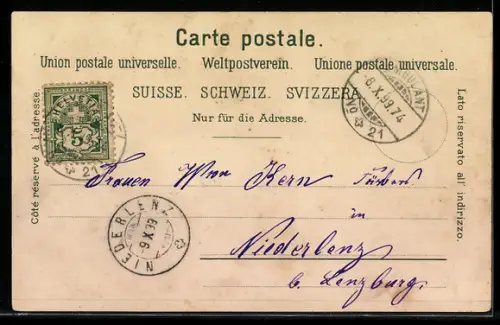 Carte postale.
Union postale universelle. Weltpostverein. Unione postale universale.
SUISSE. SCHWEIZ. SVIZZERA.
Nur für die Adresse.
Côté réservé à l'adresse.
Lato riservato all' indirizzo.
HELVETIA
5
21
AMBULANT
6.X.99.74
21
Frauen Wwe Kern
in
Niederlenz
b. Lenzburg.
NIEDERLENZ
9.X.99